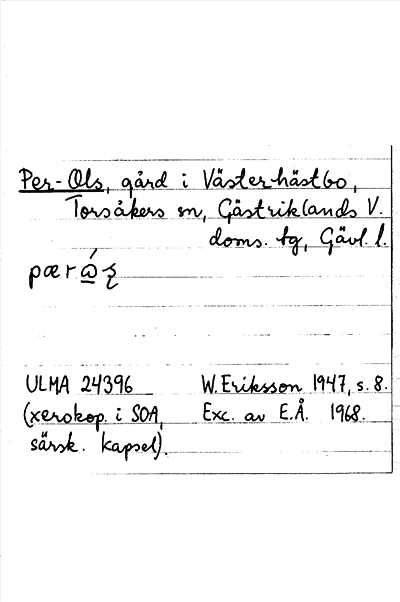 Per-Ols, gård i Västerhästbo,
Torsåkers sn, Gästriklands V.
doms. tg, Gävl. l.
ULMA 24396 W. Eriksson 1947, s. 8.
(xerokop. i SOA, Exc. av E.Å. 1968.
särsk. kapsel).